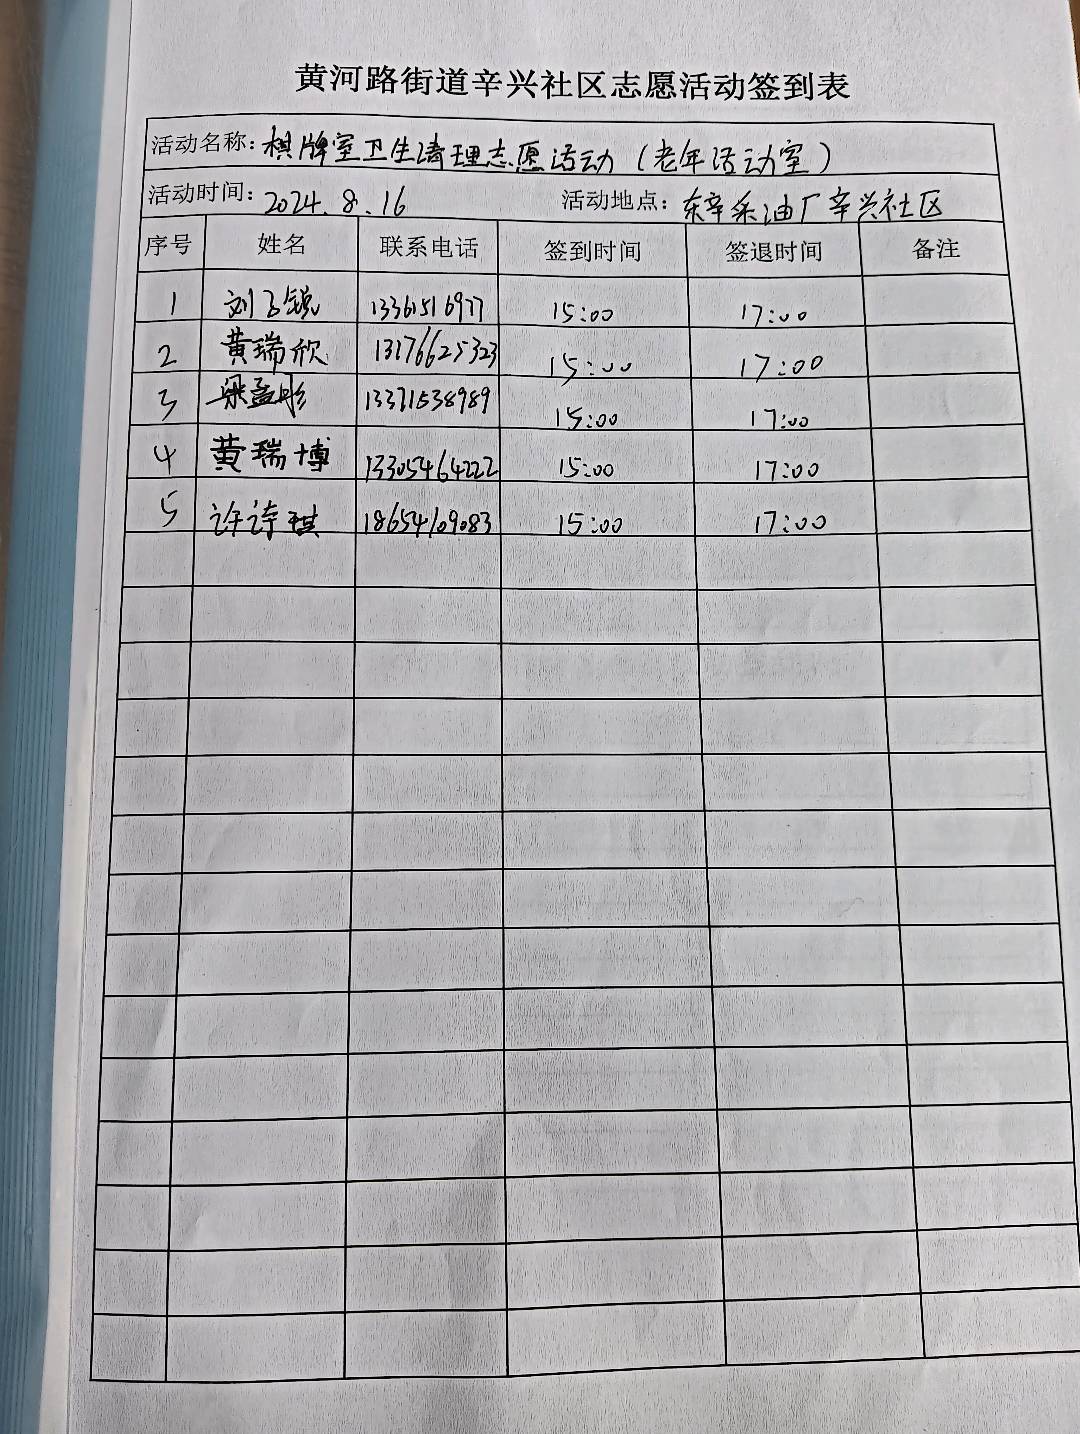 黄河路街道辛兴社区志愿活动签到表
活动名称：棋牌室卫生清理志愿活动（老年活动室）
活动时间：2024.8.16 活动地点：东辛采油厂辛兴社区
序号 姓名 联系电话 签到时间 签退时间 备注
1 刘子锐 13361516977 15:00 17:00
2 黄瑞欣 13176625323 15:00 17:00
3 梁孟彤 13371538989 15:00 17:00
4 黄瑞博 13305464222 15:00 17:00
5 许诗琪 18654109083 15:00 17:00